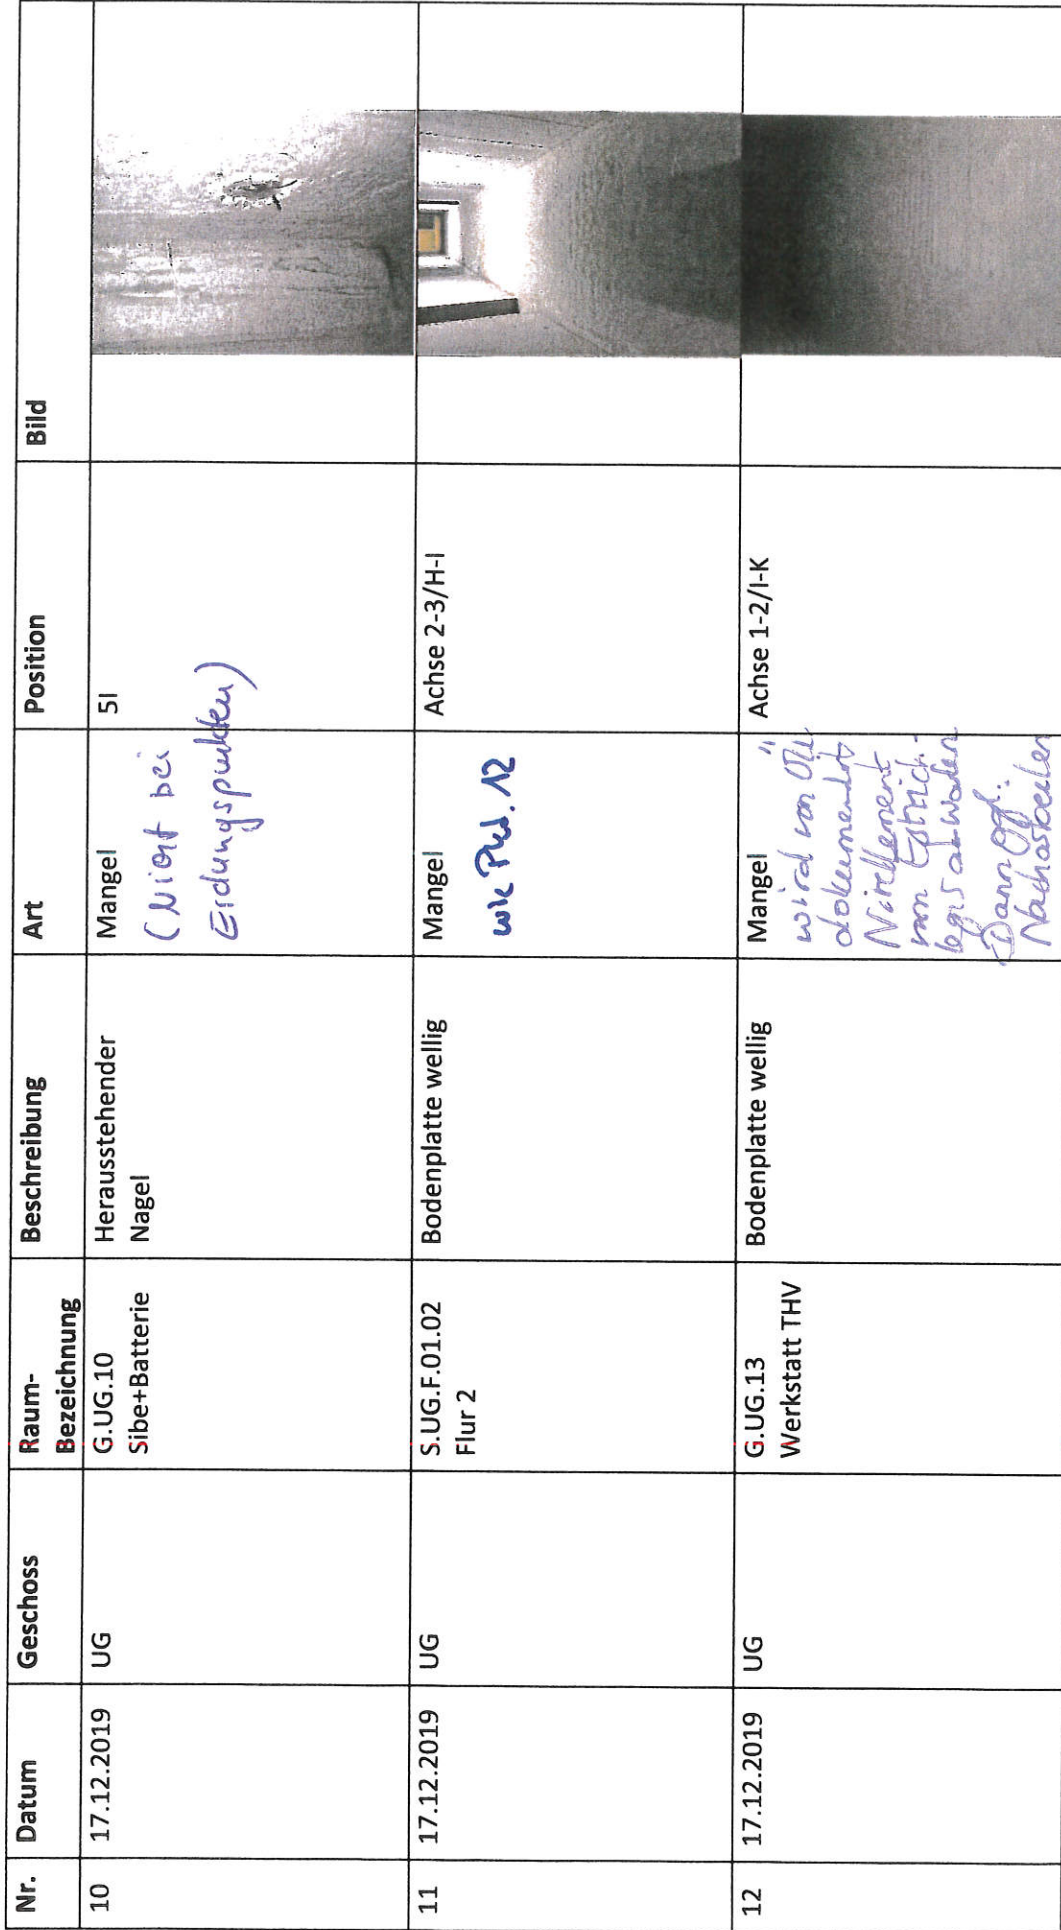 Nr.
Datum
Geschoss
Raum-
Bezeichnung
Beschreibung
Art
Position
Bild
10
17.12.2019
UG
G.UG.10
Sibe+Batterie
Herausstehender
Nagel
Mangel
(Nicht bei
Erdungspunkten)
5I
11
17.12.2019
UG
S.UG.F.01.02
Flur 2
Bodenplatte wellig
Mangel
wie Pkt. 12
Achse 2-3/H-I
12
17.12.2019
UG
G.UG.13
Werkstatt THV
Bodenplatte wellig
Mangel
wird von
dokumentiert
Nivellement
von Estrich-
leger abwarten
Dann ggf.
Nacharbeiten
Achse 1-2/I-K